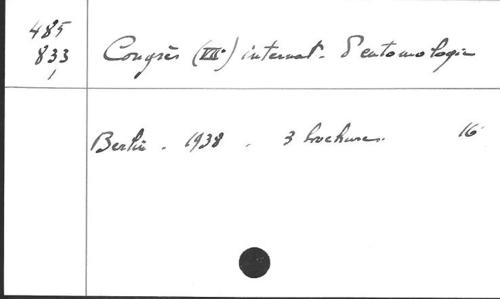 485
833
1
Congrès (VIIe) internat. d'entomologie
Berlin. 1938. 3 brochures. 16°